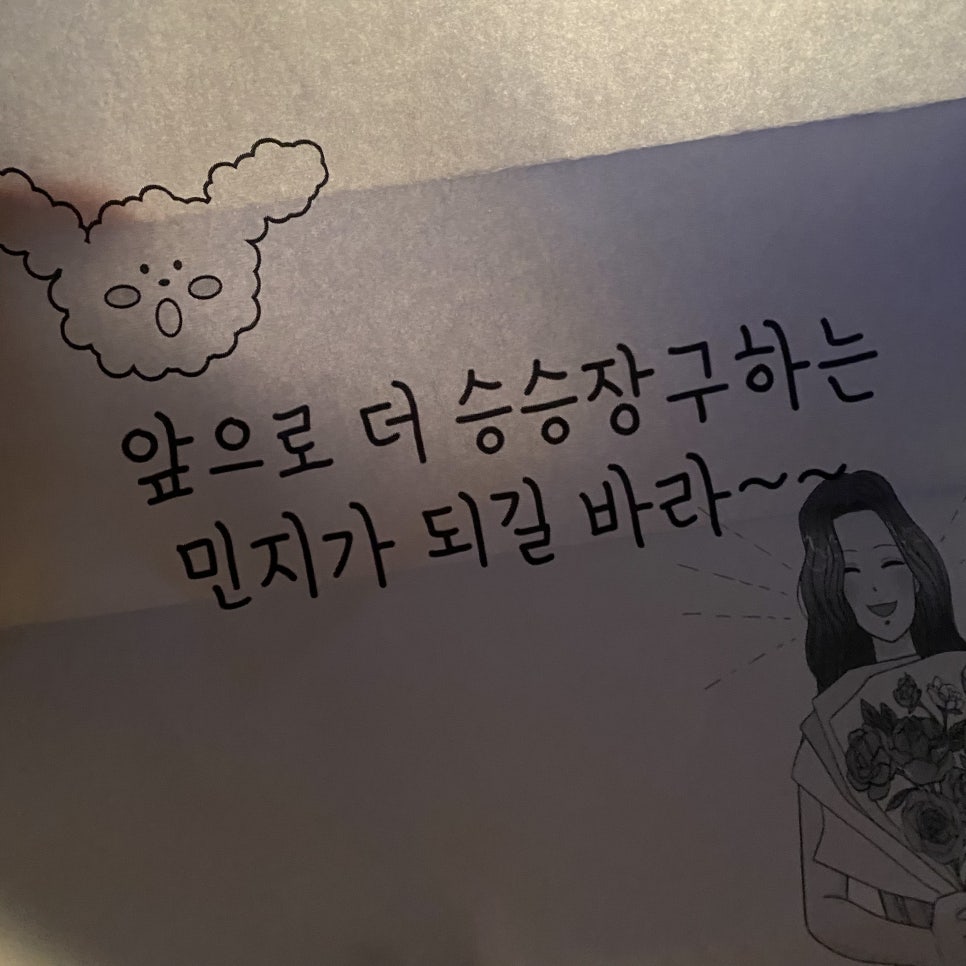 앞으로 더 승승장구하는
민지가 되길 바라~~